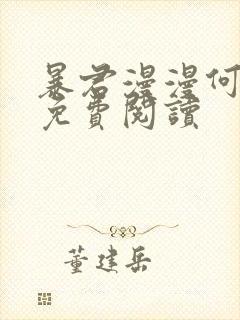 暴君漫漫何
免費閱讀
董建岳